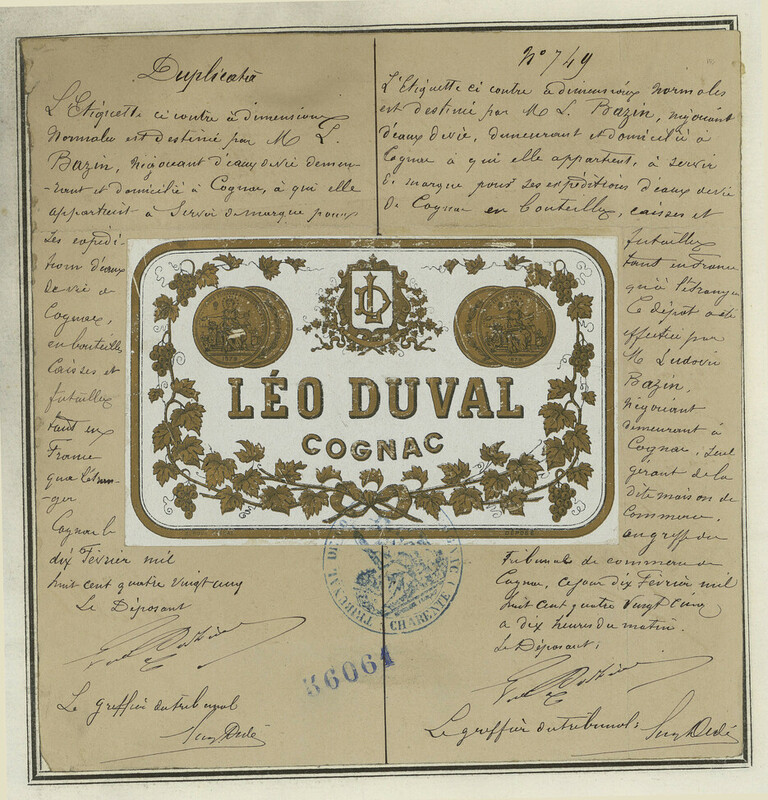 Duplicata
L'Etiquette ci contre à dimensions
Normales est destinée par M L.
Bazin, Négociant d'eaux de vie demeu-
-rant et domicilié à Cognac, à qui elle
appartient à Servir de marque pour
Ses expédi-
tions d'eaux
de vie de
Cognac,
en bouteilles
Caisses et
futailles
tant en
France
qu'à l'étran-
-ger
Cognac le
dix Février mil
huit cent quatre vingt cinq
Le Déposant
Le greffier du tribunal
N° 749
L'Etiquette ci contre à dimensions Normales
est destinée par M L. Bazin, négociant
d'eaux de vie, demeurant et domicilié à
Cognac à qui elle appartient, à servir
de marque pour ses expéditions d'eaux de vie
de Cognac en bouteilles, caisses et
futailles
tant en France
qu'à l'étranger
Ce dépôt a été
effectué par
M Ludovic
Bazin,
Négociant
demeurant à
Cognac, Seul
gérant de la
dite maison de
Commerce,
au greffe du
Tribunal de commerce de
Cognac, ce jour dix Février mil
huit cent quatre Vingt Cinq
à dix heures du matin.
Le Déposant;
Le greffier du tribunal:
LD
LÉO DUVAL
COGNAC
DÉPOSÉ
TRIBUNAL DE
CHARENTE
36061